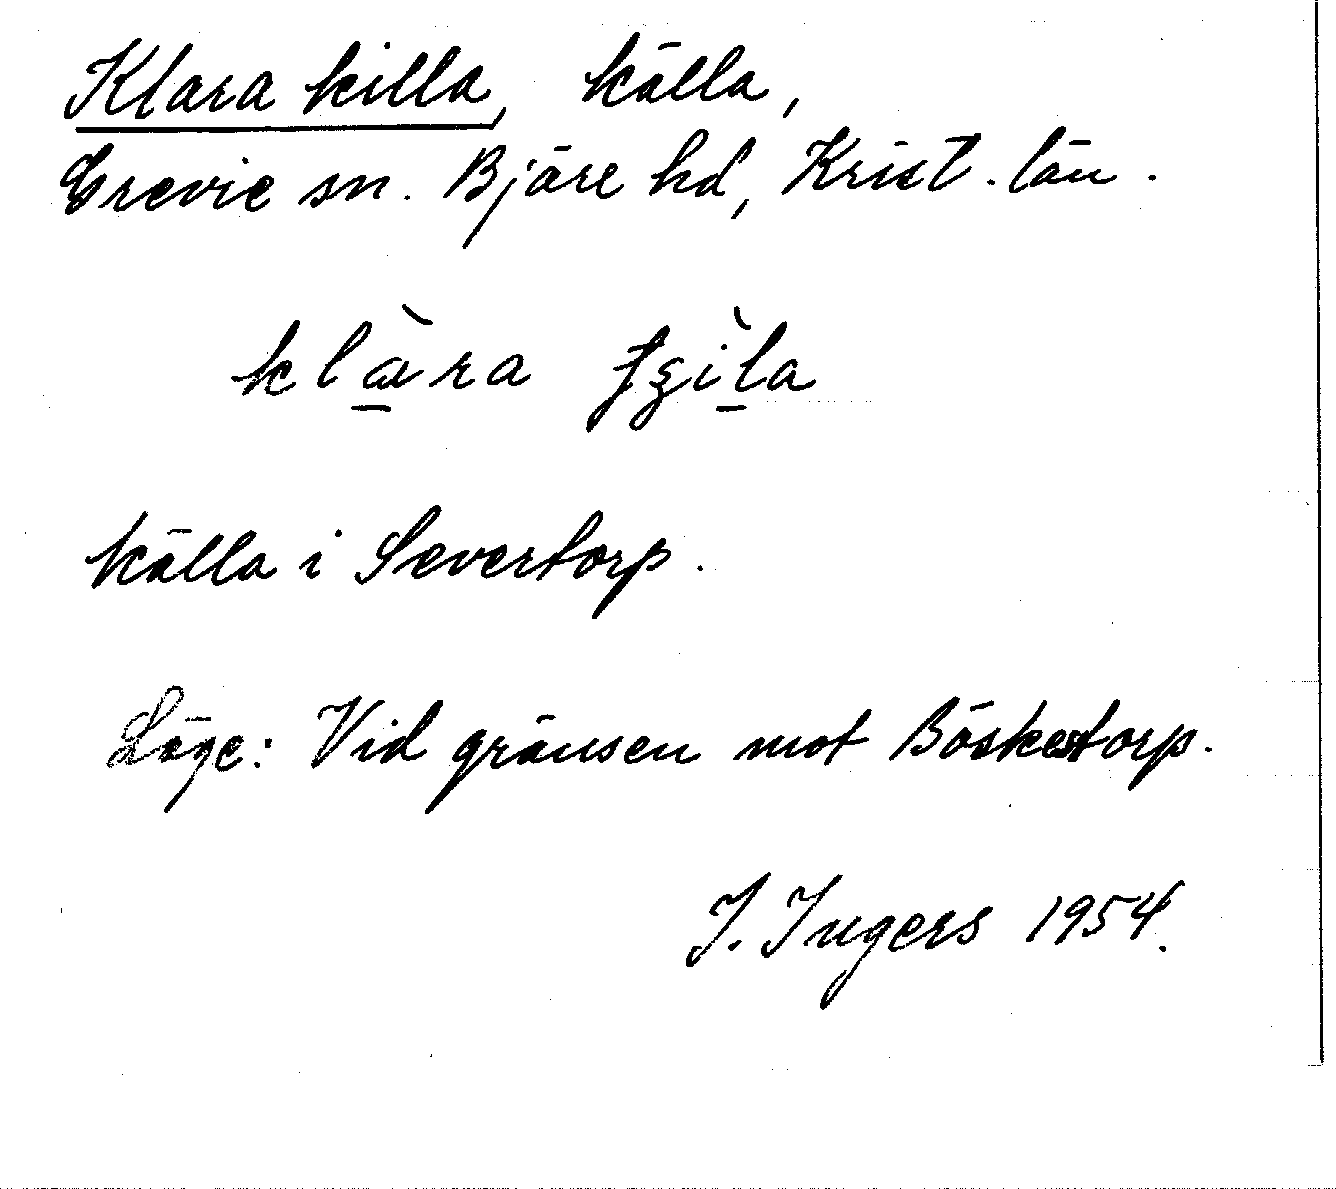 Klara killa, källa,
Grevie sn. Bjäre hd, Krist. län.
källa i Severtorp.
Läge: Vid gränsen mot Böskestorp.
I. Ingers 1954.